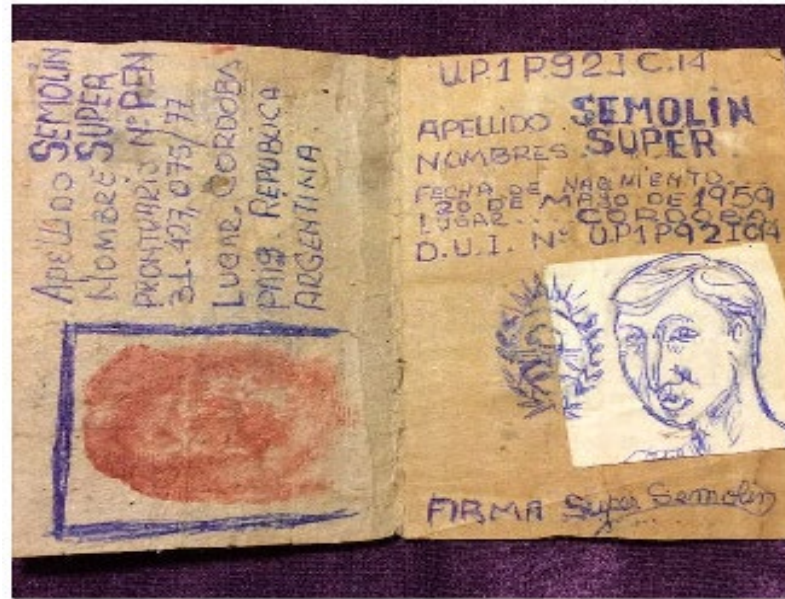 APELLIDO SEMOLÍN
NOMBRE SUPER
PRONTUARIO Nº PEN
31.427,075/77
LUGAR, CORDOBA
PAIS. REPUBLICA
ARGENTINA.
U.P.1 P.92I C.14
APELLIDO SEMOLÍN
NOMBRES SUPER
FECHA DE NACIMIENTO
20 DE MAJO DE 1959
LUGAR... CORDOBA
D.U.I. Nº U.P1P92IC14
FIRMA Super Semolin